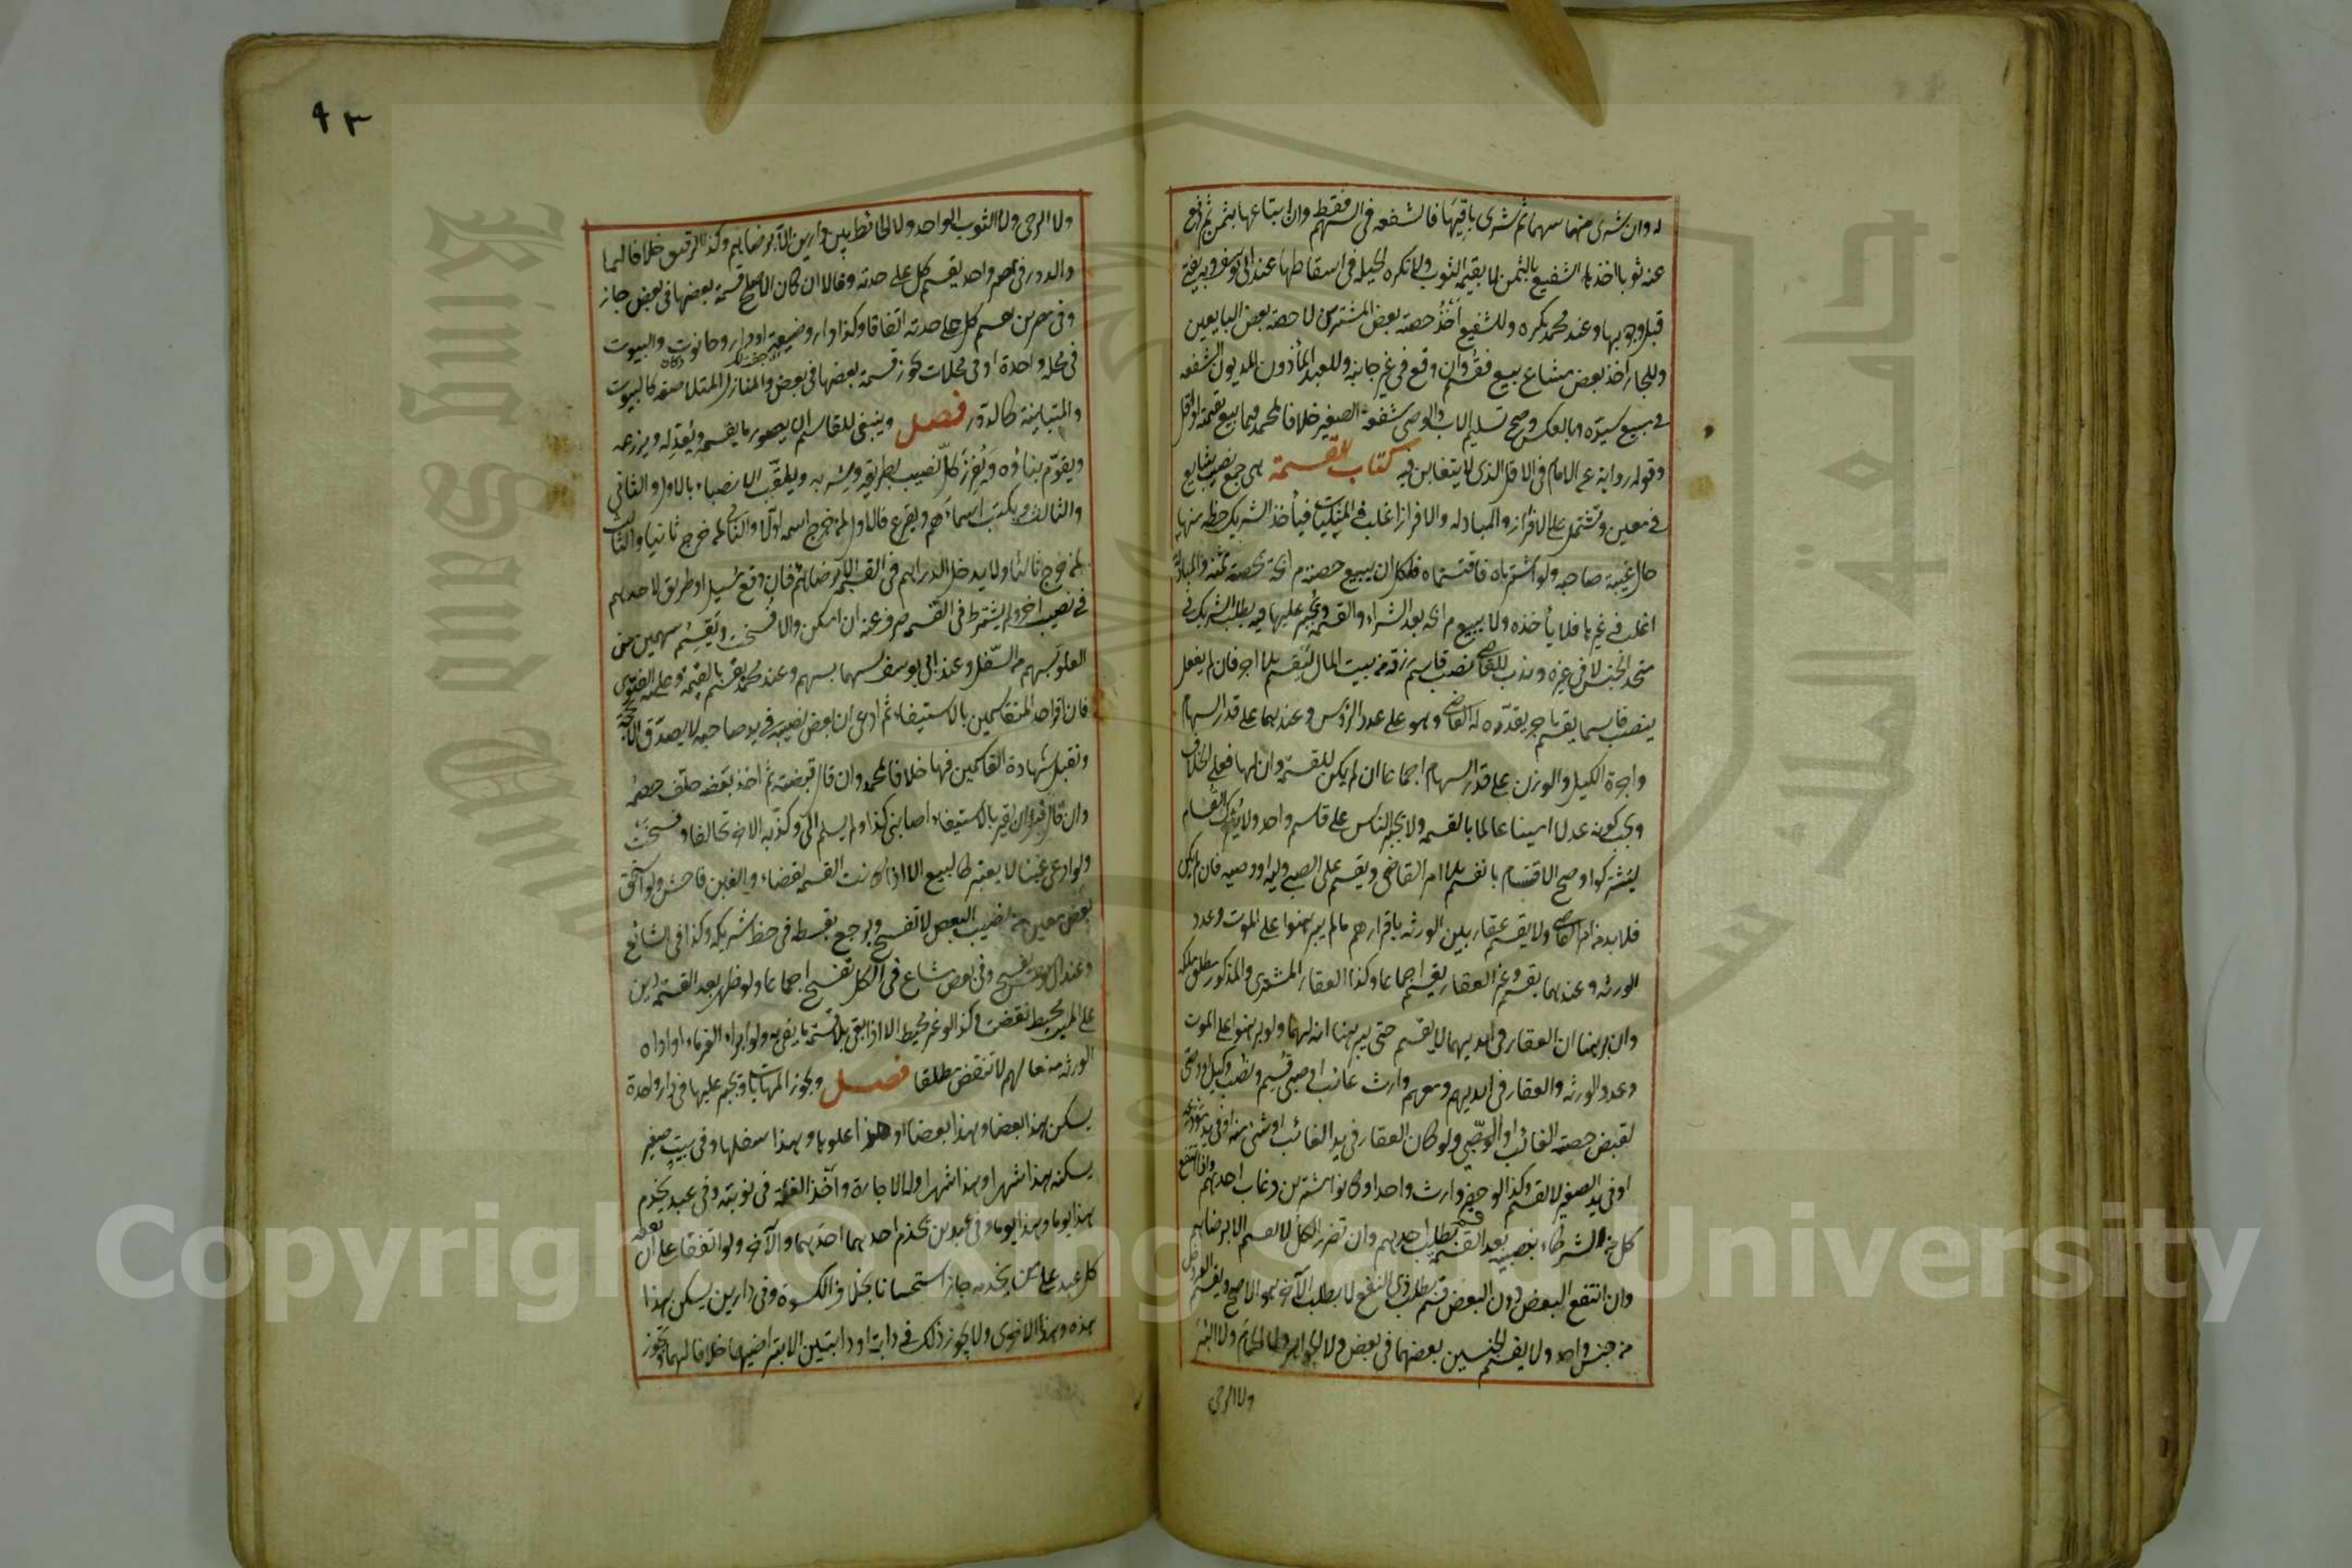 له وان شرى منها سهما ثم شرى باقيها فالشفعه فى السهم فقط وان ابتاعها بثمن ثم دفع
عنه ثوبا اخذها الشفيع بالثمن لا بقيمة الثوب ولا تكره الحيلة فى اسقاطها عند ابى يوسف وبه يفتى
قبل وجوبها وعند محمد تكره وللشفيع اخذ حصة بعض المشترين لا حصة بعض البايعين
وللجار اخذ بعض مشاع بيع فقسم وان وقع فى غير جانبه وللعبد المأذون المديون الشفعه
فى مبيع سيده وبالعكس وصح تسليم الاب والوصى شفعة الصغير خلافا لمحمد فيما بيع بقيمته او اقل
وقوله رواية عن الامام فى الاقل الذى لا يتغابن فيه كتاب القسمة هى جمع نصيب شايع
فى معين وتشتمل على الافراز والمبادلة والافراز اغلب فى المثليات فيأخذ الشريك حظه منها
حال غيبة صاحبه ولو اشترياه فاقتسماه فلكل ان يبيع حصته مرابحة بحصة ثمنه والمبادلة
اغلب فى غيرها فلا يأخذه ولا يبيع مرابحة بعد الشراء والقسمة ويجبر عليها فيه بطلب الشريك فى
متحد الجنس لا فى غيره وندب للقاضى نصب قاسم رزقه من بيت المال ليقسم بلا اجر فان لم يفعل
ينصب قاسما يقسم باجر يقدره له القاضى وهو على عدد الرؤس وعندهما على قدر السهام
واجرة الكيل والوزن على قدر السهام اجماعا ان لم يكن للقسمة وان لها فعلى الخلاف
ويجب كونه عدلا امينا عالما بالقسمه ولا يجبر الناس على قاسم واحد ولا يترك القسام
ليشتركوا وصح الاقتسام بانفسهم بلا امر القاضى ويقسم على الصبى وليه او وصيه فان لم يكن
فلا بد من امر القاضى ولا يقسم عقار بين الورثه باقرارهم ما لم يبرهنوا على الموت وعدد
الورثه وعندهما يقسم وغير العقار يقسم اجماعا وكذا العقار المشترى والمذكور مطلق ملكه
وان برهنا ان العقار فى ايديهما لا يقسم حتى يبرهنا انه لهما ولو برهنوا على الموت
وعدد الورثه والعقار فى ايديهم ومعهم وارث غائب او صبى قسم ونصب وكيل او وصى
لقبض حصة الغائب او الصبى ولو كان العقار فى يد الغائب او شئ منه او فى يد مودعه
او فى يد الصغير لا يقسم وكذا لو حضر وارث واحد او كانوا مشترين وغاب احدهم واذا انتفع
كل من الشركاء بنصيبه بعد القسمة قسم بطلب احدهم وان تضرر الكل لا يقسم الا برضاهم
وان انتفع البعض دون البعض قسم بطلب ذى النفع لا بطلب الآخر هو الاصح ويقسم العروض
من جنس واحد ولا يقسم الجنسين بعضهما فى بعض ولا الجواهر ولا الحمام ولا البئر
ولا الرحى
٩٣
ولا الرحى ولا الثوب الواحد ولا الحائط بين دارين الا برضاهم وكذا الرقيق خلافا لهما
والدور فى مصر واحد يقسم كل على حدته وقالا ان كان الاصلح قسمة بعضها فى بعض جاز
وفى مصرين يقسم كل على حدته اتفاقا وكذا دار وضيعة او دار وحانوت والبيوت
فى محلة واحدة او فى محلات يجوز قسمة بعضها فى بعض والمنازل المتلاصقه كالبيوت
والمتباينة كالدور فصل وينبغى للقاسم ان يصور ما يقسمه ويعدله ويذرعه
ويقوم بناؤه ويفرز كل نصيب بطريقه وشربه ويلقب الانصباء بالاول والثانى
والثالث ويكتب اسماءهم ويقرع فالاول لمن خرج اسمه اولا والثانى لمن خرج ثانيا والثالث
لمن خرج ثالثا ولا يدخل الدراهم فى القسمة الا برضاهم فان وقع مسيل او طريق لاحدهم
فى نصيب آخر ولم يشترط فى القسمه صرف عنه ان امكن والا فسخت ويقسم سهمين من
العلو بسهم من السفل وعند ابى يوسف سهما بسهم وعند محمد يقسم بالقيمة وعليه الفتوى
فان اقر احد المتقاسمين بالاستيفاء ثم ادعى ان بعض نصيبه فى يد صاحبه لا يصدق الا بحجة
وتقبل شهادة القاسمين فيها خلافا لمحمد وان قال قبضته ثم اخذ بعضه حلف خصمه
وان قال قبل ان يقر بالاستيفاء اصابنى كذا ولم يسلم الى وكذبه الآخر تحالفا وفسخت
ولو ادعى غبنا لا يعتبر كالبيع الا اذا كانت القسمه بقضاء والغبن فاحش ولو استحق
بعض معين من نصيب البعض لا تفسخ ويرجع بقسطه فى حظ شريكه وكذا فى الشائع
وعند ابى يوسف تفسخ وفى بعض مشاع فى الكل تفسخ اجماعا ولو ظهر بعد القسمة دين
على الميت محيط نقضت وكذا لو غير محيط الا اذا بقى بلا قسمة ما يفى به ولو ابراه الغرماء او اداه
الورثه من مالهم لا تنقض مطلقا فصل ويجوز المهايأة ويجبر عليها فى دار واحدة
يسكن هذا بعضا وهذا بعضا او هذا علوها وهذا سفلها وفى بيت صغير
يسكنه هذا شهرا وهذا شهرا وله الاجارة واخذ الغلة فى نوبته وفى عبد يخدم
هذا يوما وهذا يوما وفى عبدين يخدم احدهما احدهما والآخر الآخر ولو اتفقا على ان نفقة
كل عبد على من يخدمه جاز استحسانا بخلاف الكسوة وفى دارين يسكن هذا
هذه وهذا الاخرى ولا يجوز ذلك فى دابة او دابتين الا بتراضيهما خلافا لهما ويجوز
King Saud University
جامعة الملك سعود
Copyright © King Saud University